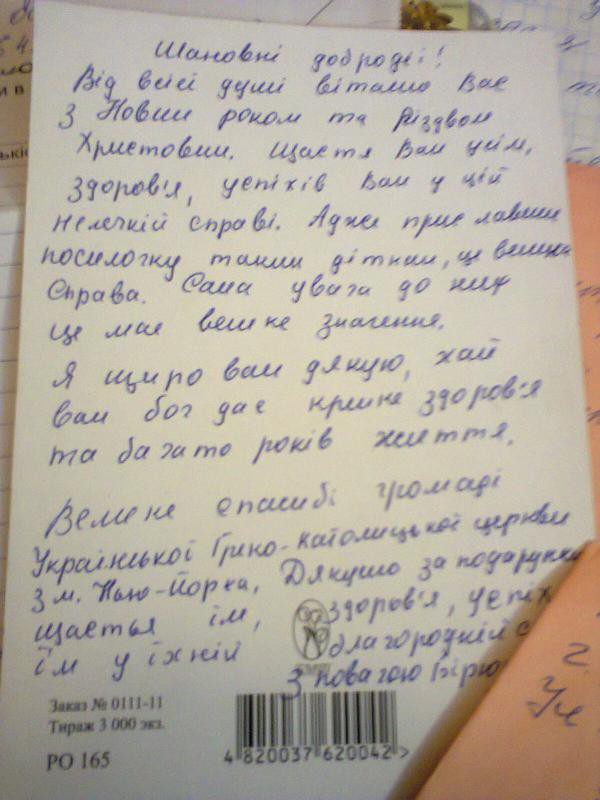 Шановні добродії!
Від всієї душі вітаємо Вас
З Новим роком та Різдвом
Христовим. Щастя Вам усім,
здоров'я, успіхів Вам у цій
нелечкій справі. Адже приславши
посилочку таким діткам, це велика
Справа. Сама увага до них
це має велике значення.
Я щиро вам дякую, хай
вам бог дає кріпке здоров'я
та багато років життя.
Велике спасибі громаді
Української Греко-католицької церкви
З м. Нью-Йорка, Дякуємо за подарунки
щастья їм, здоров'я, успіх
їм у їхній благородній с
З повагою
Заказ № 0111-11
Тираж 3 000 экз.
РО 165
4 820037 620042 >